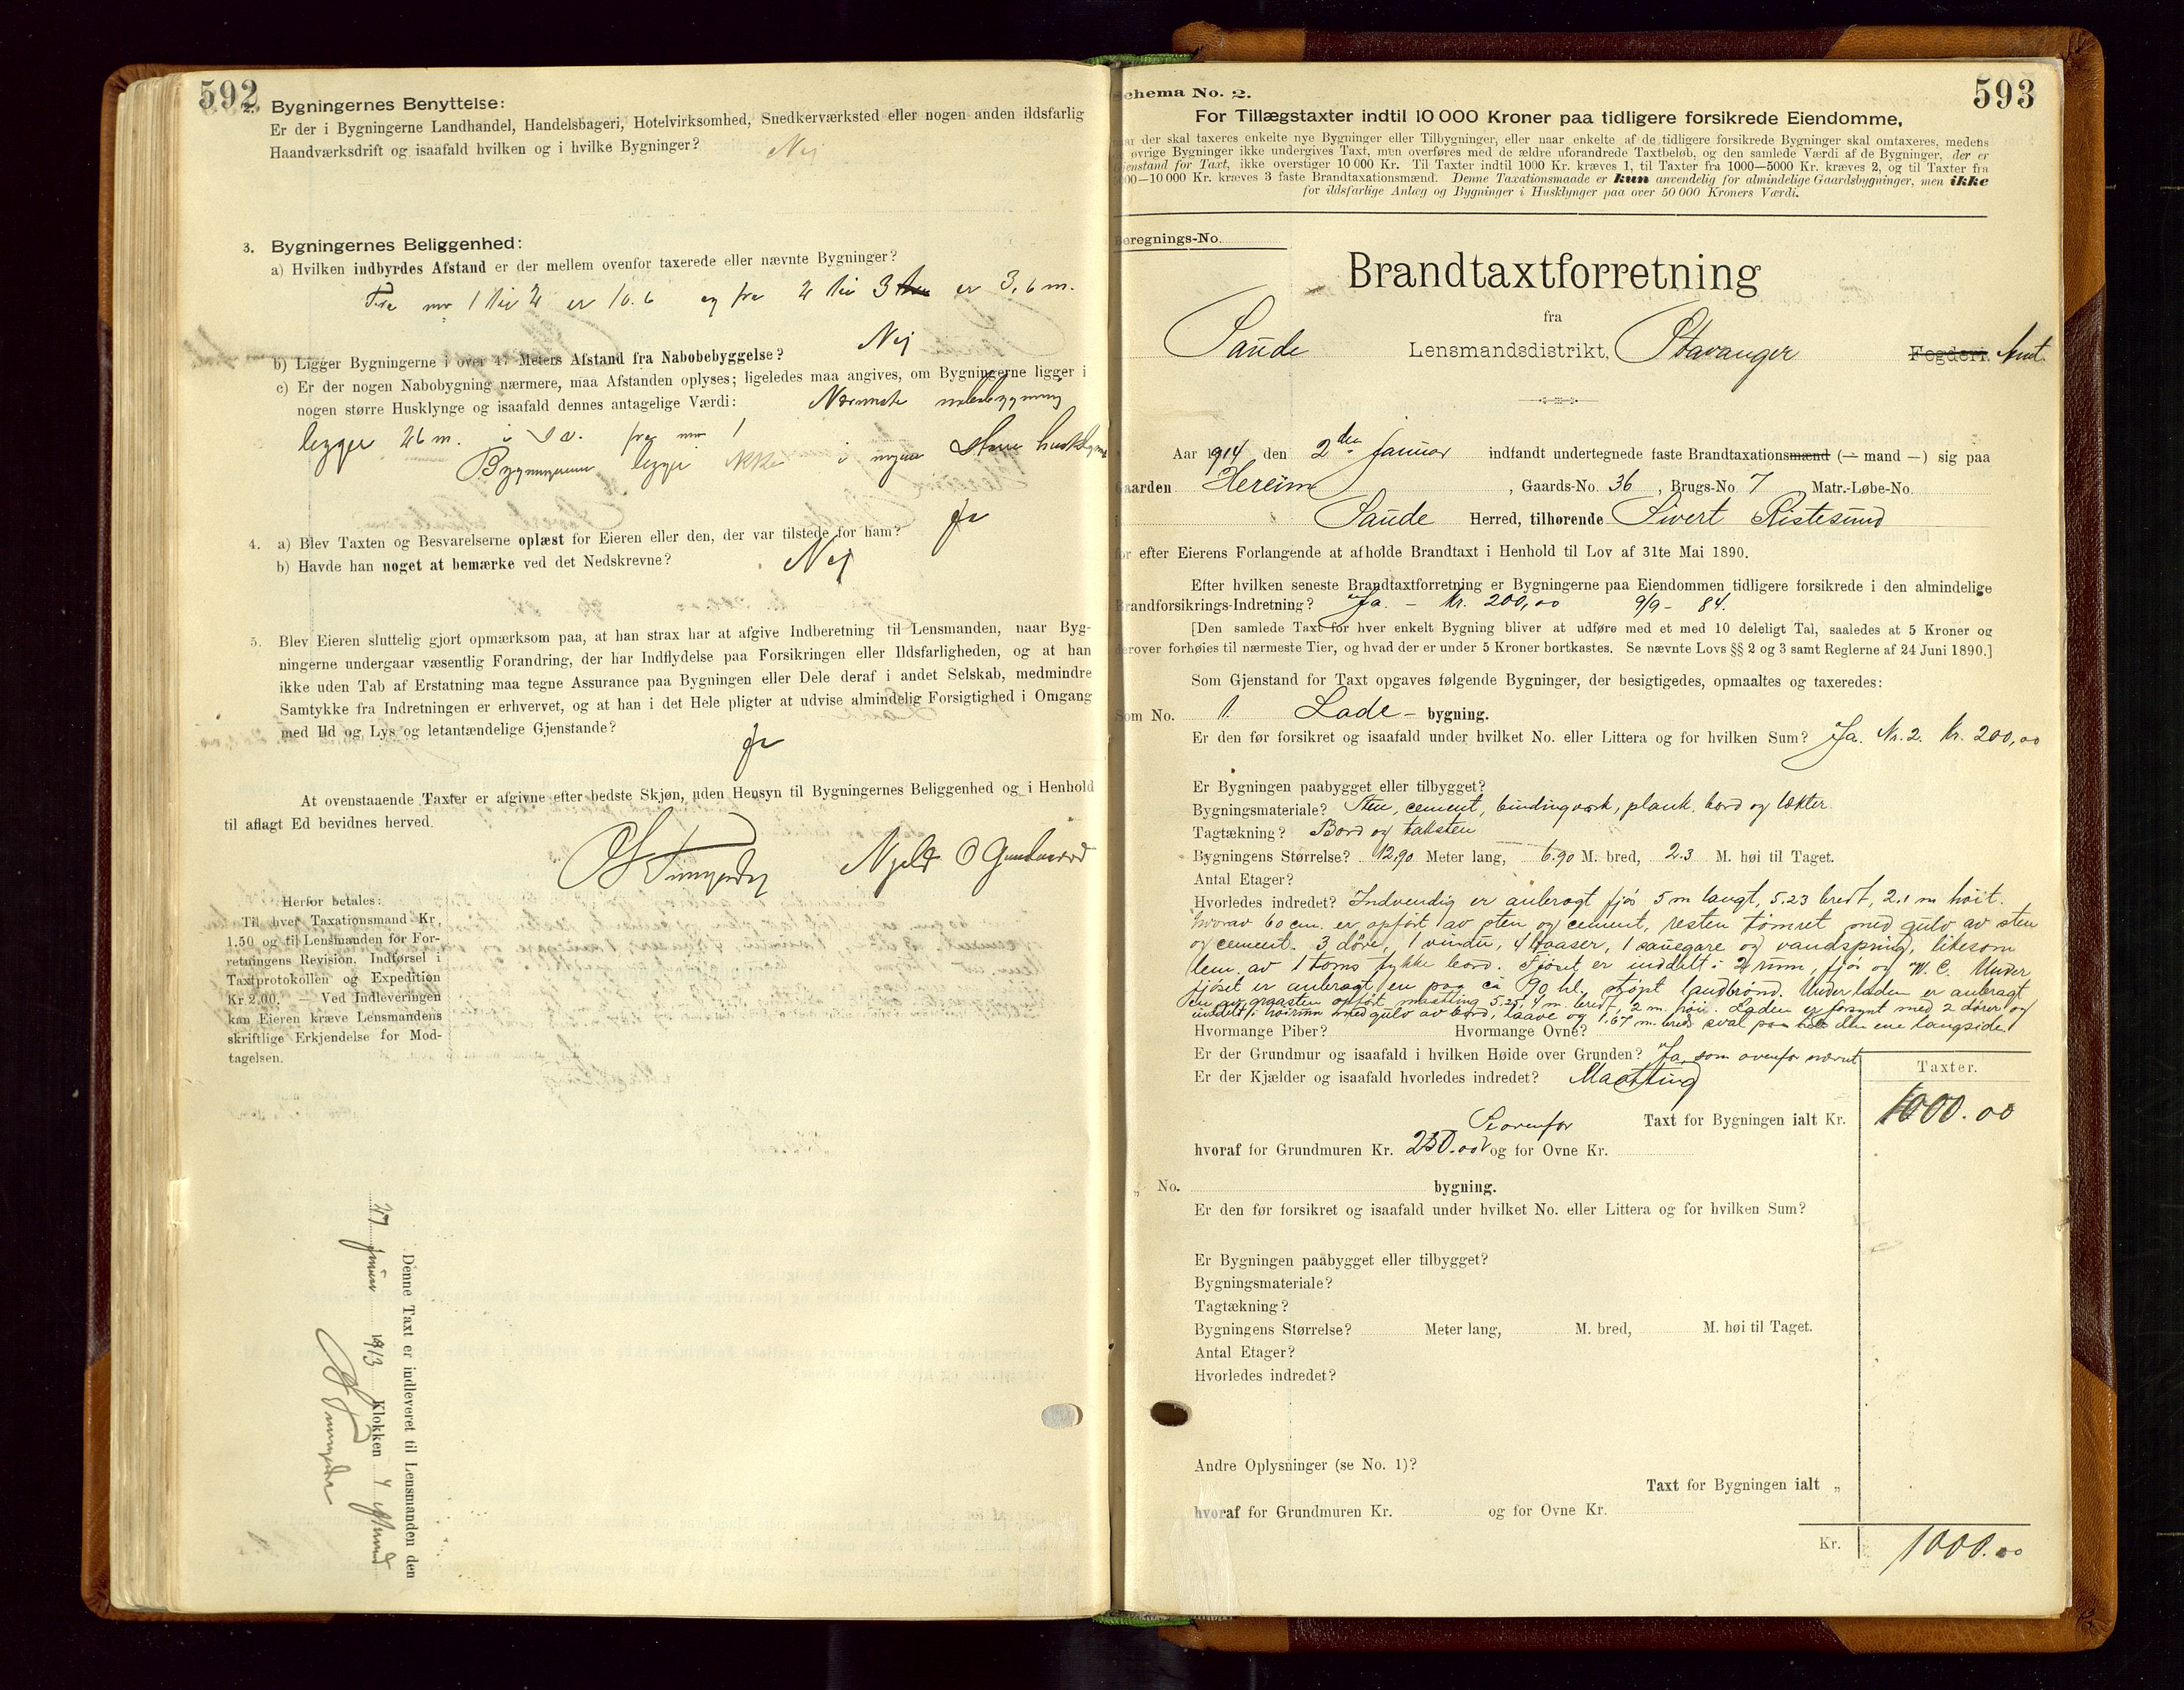 592
2. Bygningernes Benyttelse:
Er der i Bygningerne Landhandel, Handelsbageri, Hotelvirksomhed, Snedkerværksted eller nogen anden ildsfarlig
Haandværksdrift og isaafald hvilken og i hvilke Bygninger? Nei
3. Bygningernes Beliggenhed:
a) Hvilken indbyrdes Afstand er der mellem ovenfor taxerede eller nævnte Bygninger?
Fra nr 1 til 2 er 10.6 og fra 2 til 3 er 3,6 m.
b) Ligger Bygningerne i over 47 Meters Afstand fra Nabobebyggelse? Nej
c) Er der nogen Nabobygning nærmere, maa Afstanden oplyses; ligeledes maa angives, om Bygningerne ligger i
nogen større Husklynge og isaafald dennes antagelige Værdi: Nærmeste nabobygning
ligger 26 m. i fra nr 1
Bygningerne ligger ikke i nogen større husklynge
4. a) Blev Taxten og Besvarelserne oplæst for Eieren eller den, der var tilstede for ham? Ja
b) Havde han noget at bemærke ved det Nedskrevne? Nej
5. Blev Eieren sluttelig gjort opmærksom paa, at han strax har at afgive Indberetning til Lensmanden, naar Byg-
ningerne undergaar væsentlig Forandring, der har Indflydelse paa Forsikringen eller Ildsfarligheden, og at han
ikke uden Tab af Erstatning maa tegne Assurance paa Bygningen eller Dele deraf i andet Selskab, medmindre
Samtykke fra Indretningen er erhvervet, og at han i det Hele pligter at udvise almindelig Forsigtighed i Omgang
med Ild og Lys og letantændelige Gjenstande?
Ja
At ovenstaaende Taxter er afgivne efter bedste Skjøn, uden Hensyn til Bygningernes Beliggenhed og i Henhold
til aflagt Ed bevidnes herved.
Herfor betales:
Til hver Taxationsmand Kr.
1.50 og til Lensmanden for For-
retningens Revision, Indførsel i
Taxtprotokollen og Expedition
Kr 2.00. — Ved Indleveringen
kan Eieren kræve Lensmandens
skriftlige Erkjendelse for Mod-
tagelsen.
Denne Taxt er indleveret til Lensmanden den
1913 Klokken 4
593
Schema No. 2.
For Tillægstaxter indtil 10 000 Kroner paa tidligere forsikrede Eiendomme,
ar der skal taxeres enkelte nye Bygninger eller Tilbygninger, eller naar enkelte af de tidligere forsikrede Bygninger skal omtaxeres, medens
øvrige Bygninger ikke undergives Taxt, men overføres med de ældre uforandrede Taxtbeløb, og den samlede Værdi af de Bygninger, der er
jenstand for Taxt, ikke overstiger 10 000 Kr. Til Taxter indtil 1000 Kr. kræves 1, til Taxter fra 1000—5000 Kr. kræves 2, og til Taxter fra
00—10 000 Kr. kræves 3 faste Brandtaxationsmænd. Denne Taxationsmaade er kun anvendelig for almindelige Gaardsbygninger, men ikke
for ildsfarlige Anlæg og Bygninger i Husklynger paa over 50 000 Kroners Værdi.
Beregnings-No.
Brandtaxtforretning
fra
Saude Lensmandsdistrikt, Stavanger Fogderi. Amt.
Aar 1914 den 2den Januar indfandt undertegnede faste Brandtaxationsmænd (— mand —) sig paa
Gaarden Hereim, Gaards-No. 36, Brugs-No. 7 Matr.-Løbe-No.
i Saude Herred, tilhørende Sivert Ristesund
for efter Eierens Forlangende at afholde Brandtaxt i Henhold til Lov af 31te Mai 1890.
Efter hvilken seneste Brandtaxtforretning er Bygningerne paa Eiendommen tidligere forsikrede i den almindelige
Brandforsikrings-Indretning? Ja. - Kr. 200,00 9/9 - 84.
[Den samlede Taxt for hver enkelt Bygning bliver at udføre med et med 10 deleligt Tal, saaledes at 5 Kroner og
derover forhøies til nærmeste Tier, og hvad der er under 5 Kroner bortkastes. Se nævnte Lovs §§ 2 og 3 samt Reglerne af 24 Juni 1890.]
Som Gjenstand for Taxt opgaves følgende Bygninger, der besigtigedes, opmaaltes og taxeredes:
Som No. 1. Lade - bygning.
Er den før forsikret og isaafald under hvilket No. eller Littera og for hvilken Sum? Ja. Nr. 2. Kr. 200,00
Er Bygningen paabygget eller tilbygget?
Bygningsmateriale? Sten, cement, bindingverk, plank, bord og lækter.
Tagtækning? Bord og taksten
Bygningens Størrelse? 12,90 Meter lang, 6.90 M. bred, 2.3 M. høi til Taget.
Antal Etager?
Hvorledes indredet? Indvendig er anbragt fjøs 5 m langt, 5.23 bredt, 2.1 m høit.
hvorav 60 cm. er opført av sten og cement, resten tømret med gulv av sten
og cement. 3 døre, 1 vindu, 4 baaser, 1 sauegare og vandspring, likesom
lem av 1 toms tykke bord. Fjøset er inddelt i 2 rum, fjøs og W. C. Under
fjøset er anbragt en paa ca 90 hl. støpt landbrønd. Under laden er anbragt
en av graasten opført maatting 5.25, 4 m. bredt, 2 m. høi. Laden er forsynt med 2 dører og
inddelt i høirum med gulv av bord, laave og 1.67 m. bred sval paa den ene langside.
Hvormange Piber? Hvormange Ovne?
Er der Grundmur og isaafald i hvilken Høide over Grunden? Ja, som ovenfor nævnt
Er der Kjælder og isaafald hvorledes indredet? Maatting
Taxter.
Se ovenfor Taxt for Bygningen ialt Kr. 1000.00
hvoraf for Grundmuren Kr. 250.00 og for Ovne Kr.
" No. bygning.
Er den før forsikret og isaafald under hvilket No. eller Littera og for hvilken Sum?
Er Bygningen paabygget eller tilbygget?
Bygningsmateriale?
Tagtækning?
Bygningens Størrelse? Meter lang, M. bred, M. høi til Taget.
Antal Etager?
Hvorledes indredet?
Andre Oplysninger (se No. 1)?
Taxt for Bygningen ialt "
hvoraf for Grundmuren Kr. og for Ovne Kr.
Kr. 1000.00